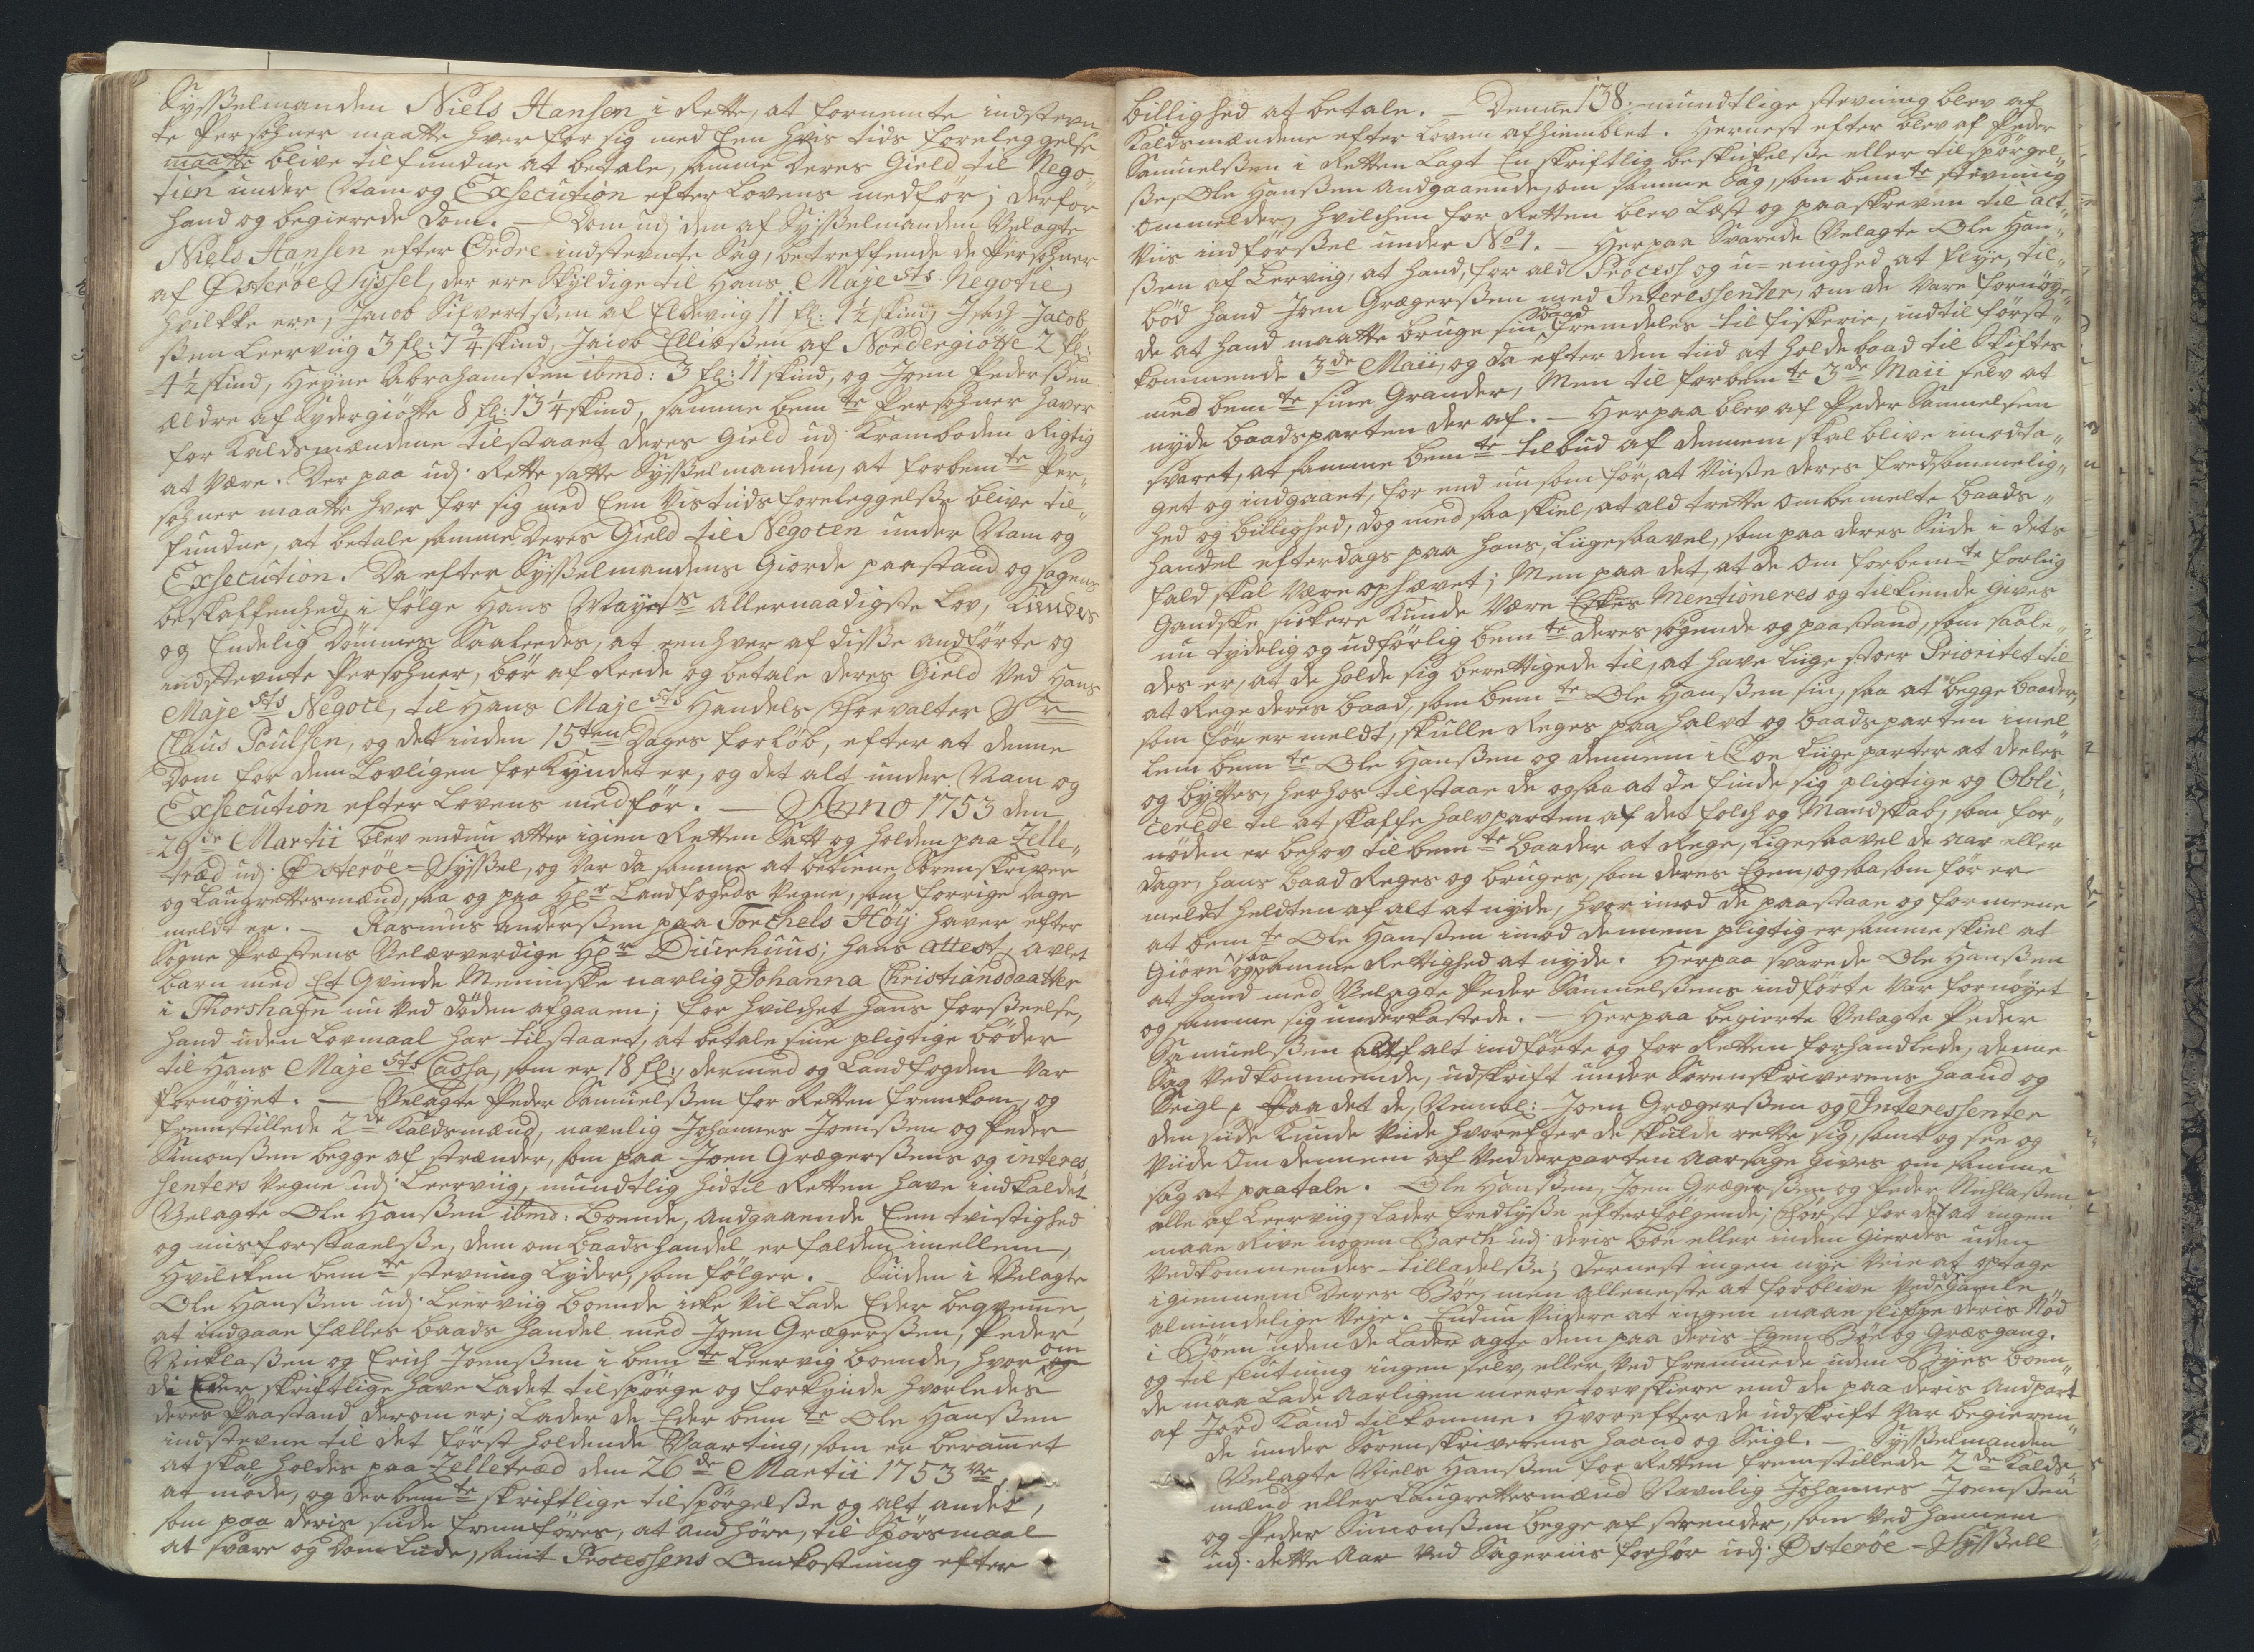 Sysselmanden Niels Hansen i Rette, at fornemte indstevn
te Persohner maatte hver for sig med Een vis tids foreleggelse
maatte blive tilfundne at betale, samme deres Gield til Nego„
tien under Nam og Exsecution efter Lovens medför; derfor
hand og begierede Dom. — Dom udj den af Sysselmanden Velagte
Niels Hansen efter Ordre indstevnte Sag, betreffende de Persohner
af Österöe Syssel, der ere Skyldige til Hans Maje sts Negotie,
hvilkke ere, Jacob Sifvertssen af Eldeviig 11 fl: 1½ skind, Isach Jacob
ssen Leerviig 3 fl: 7¾ skind, Jacob Elliæssen af Nordergiötte 2 fl:
4½ skind, Heyne Abrahamssen ibmd: 3 fl: 11 skind, og Joen Pederssen
ældre af Sydergiötte 8 fl: 13¼ skind, samme bemte Persohner haver
for Kaldsmændene tilstaaet deres Gield udj Kramboden Rigtig
at være. Der paa udj Rette satte Sysselmanden, at forbemte Per„
sohner maatte hver for sig med Een Vis tiids foreleggelsse blive til„
fundne, at betale samme deres Gield til Negocen under Nam og
Exsecution. Da efter Sysselmandens Giorde paastand og sagens
beskaffenhed, i fölge Hans Mayts allernaadigste Lov, Kiendes
og Endelig Dömmes Saaledes, at eenhver af disse anförte og
indstevnte Persohner, bör af Reede og betale deres Gield Ved Hans
Maje sts Negoce, til Hans Maje sts Handels Forvalter Sr
Claus Poulsen, og det inden 15ten Dages forlöb, efter at denne
Dom for dem Lovligen forkyndet er, og det alt under Nam og
Exsecution efter Lovens medför. — Anno 1753 den
29de Martii blev endnu atter igien Retten Satt og holden paa Zelle„
træd udj Österöe-Syssel, og var da samme at betiene Sorenskriver
og Laugrettesmænd, saa og paa Hr Landfogeds Vegne, som forrige dage
meldt er. — Rasmus Anderssen paa Torchels Höij haver efter
Sogne Præstens Velærverdige Hr Diurhuus; hans attest, avlet
barn med Et Qvinde Menniske navlig Johanna Christiansdaatter
i Thorshafn nu ved döden afgaaen; for hvilchet hans forsseelse,
hand uden Lovmaal har tilstaaet, at betale sine pligtige böder
til Hans Maje sts Cassa, som er 18 fl:, dermed og Landfogden var
fornöyet. — Velagte Peder Samuelssen for Retten fremkom, og
fremstillede 2de Kaldsmænd, navnlig Johannes Joenssen og Peder
Simonssen begge af strænder, som paa Joen Grægerssens og interes
senters Vegne udj Leerviig, mundtlig hidtil Retten have indkaldet
Velagte Ole Hanssen ibmd: boende, andgaaende Een tvistighed
og misforstaaelsse, dem om baads handel er falden imellem,
hvilcken bemte stevning Lyder, som fölger. — Siiden i Velagte
Ole Hanssen udj Leerviig boende icke vil Lade Eder beqvemme,
at indgaae fælles baads handel med Joen Grægerssen, Peder
Nicklassen og Erich Joenssen i bemte Leervig boende, hvor om
de Eder skriftlige have Ladet tilspörge og forkynde hvorledes
deres Paastand derom er; Lader de Eder bemte Ole Hanssen
indstevne til det först holdende Vaarting, som er beramet
at skal holdes paa Zelletræd den 26de Martii 1753 ve
at möde, og der bemte skriftlige tilspörgelsse og alt andet,
som paa deris side fremföres, at andhöre, til Spörsmaal
at svare og Dom Liide, samt Processens Omkostning efter
138.
billighed at betale. — Denne mundtlige stevning blev af
Kaldsmændene efter Loven afhiemblet. Hernest efter blev af Peder
Samuelssen i Retten Lagt En skriftlig beskikelsse eller tilspörgel„
sse, Ole Hanssen andgaaende, om samme Sag, som bemte stevning
ommelder, hvilchen for Retten blev Læst og paaskreven til act„
viis indförssel under No 1. — Herpaa Svarede Velagte Ole Han„
ssen af Lerviig, at hand, for ald Process og u-enighed, at flye, til„
böd hand Joen Grægerssen med Interessenter, om de vare fornöye„
de at hand maatte bruge sin baad fremdeles til fiskerie, indtil först„
kommende 3de Maii, og da efter den tiid at holde baad til Skiftes
med bemte sine Grander, Men til forbemte 3de Maii selv at
nyde baadsparten der af. — Herpaa blev af Peder Samuelsen
svaret, at samme bemte tilbud af dennem skal blive imodta„
get og indgaaet, for end nu som för, at Viisse deres fredsommelig„
hed og billighed, dog med saa skiel, at ald trette ombemelte baads„
handel efterdags paa hans, Liigesaavel, som paa deres Siide i dets
fald, skal være ophævet; Men paa det, at de om forbemte forlig
Gandske sickere Kunde være Mentioneres og tilkiende gives
nu tydelig og udförlig bemte deres sögende og paastand, som saale„
des er, at de holde sig berettigede til, at have Liige stoer Prioritet til
at Rege deres baad, som bemte Ole Hanssen sin, saa at begge baader,
som för er meldt, skulle Reges paa halvt og baadsparten imel„
lem bemte Ole Hanssen og dennem i toe Liige parter at deeles
og byttes, herhos tilstaar de ogsaa at de finde sig pligtige og Obli„
cerede til at skaffe halvparten af det folch og Mandskab, som for„
nöden er behov til bemte baader at Rege, ligesaavel de aar eller
dage, hans baad Reges og bruges, som deres Egen, ogsaasom för er
meldt helten af alt at nyde, hvor imod de paastaar og formeene
at bemte Ole Hanssen imod dennem pligtig er samme skiel at
Giöre og saa samme Rettighed at nyde. Herpaa svarede Ole Hanssen
at hand med Velagte Peder Samuelssens indförte var fornöyet
og samme sig underkastede. — Herpaa begierte Velagte Peder
Samuelssen alt indförte og for Retten forhandlede, denne
Sag vedkommende, udskrift under Sorenskriverens haand og
Seigl, Paa det de, Nembl: Joen Grægerssen og Interessenter
den siide kunde viide hvorefter de skulde rette sig, samt og see og
viide om dennem af vedderparten aarsage gives om samme
sag at paatale. Ole Hanssen, Joen Grægerssen og Peder Nichlassen
alle af Leerviig, Lader fredlysse efterfölgende; först for det at ingen
maae Rive nogen Barch udj deris böe eller inden gierdes uden
vedkommendes tilladelsse; Dernest ingen nye Veie at optage
igiennem deres Böe, men alleneste at forblive ved Gamle
almindelige Veje. Endnu Viidere at ingen maae slippe deris Nöd
i Böen uden de Lader agte dem paa deris Egen Böe og Græsgang.
og til slutning ingen selv, eller ved fremmede uden Byes boen„
de maa Lade aarligen meere torvskiere end de paa deris andpart
af Jord kand tilkomme. Hvorefter de udskrift var begieren„
de under Sorenskriverens haand og Seigl. — Sysselmanden
Velagte Niels Hanssen for Retten fremstillede 2de Kalds
mænd eller Laugrettesmænd Navnlig Johannes Joenssen
og Peder Simonssen begge af strender, som ved hannem
udj dette aar ved Sagernis forhör udj Österöe-Syssell